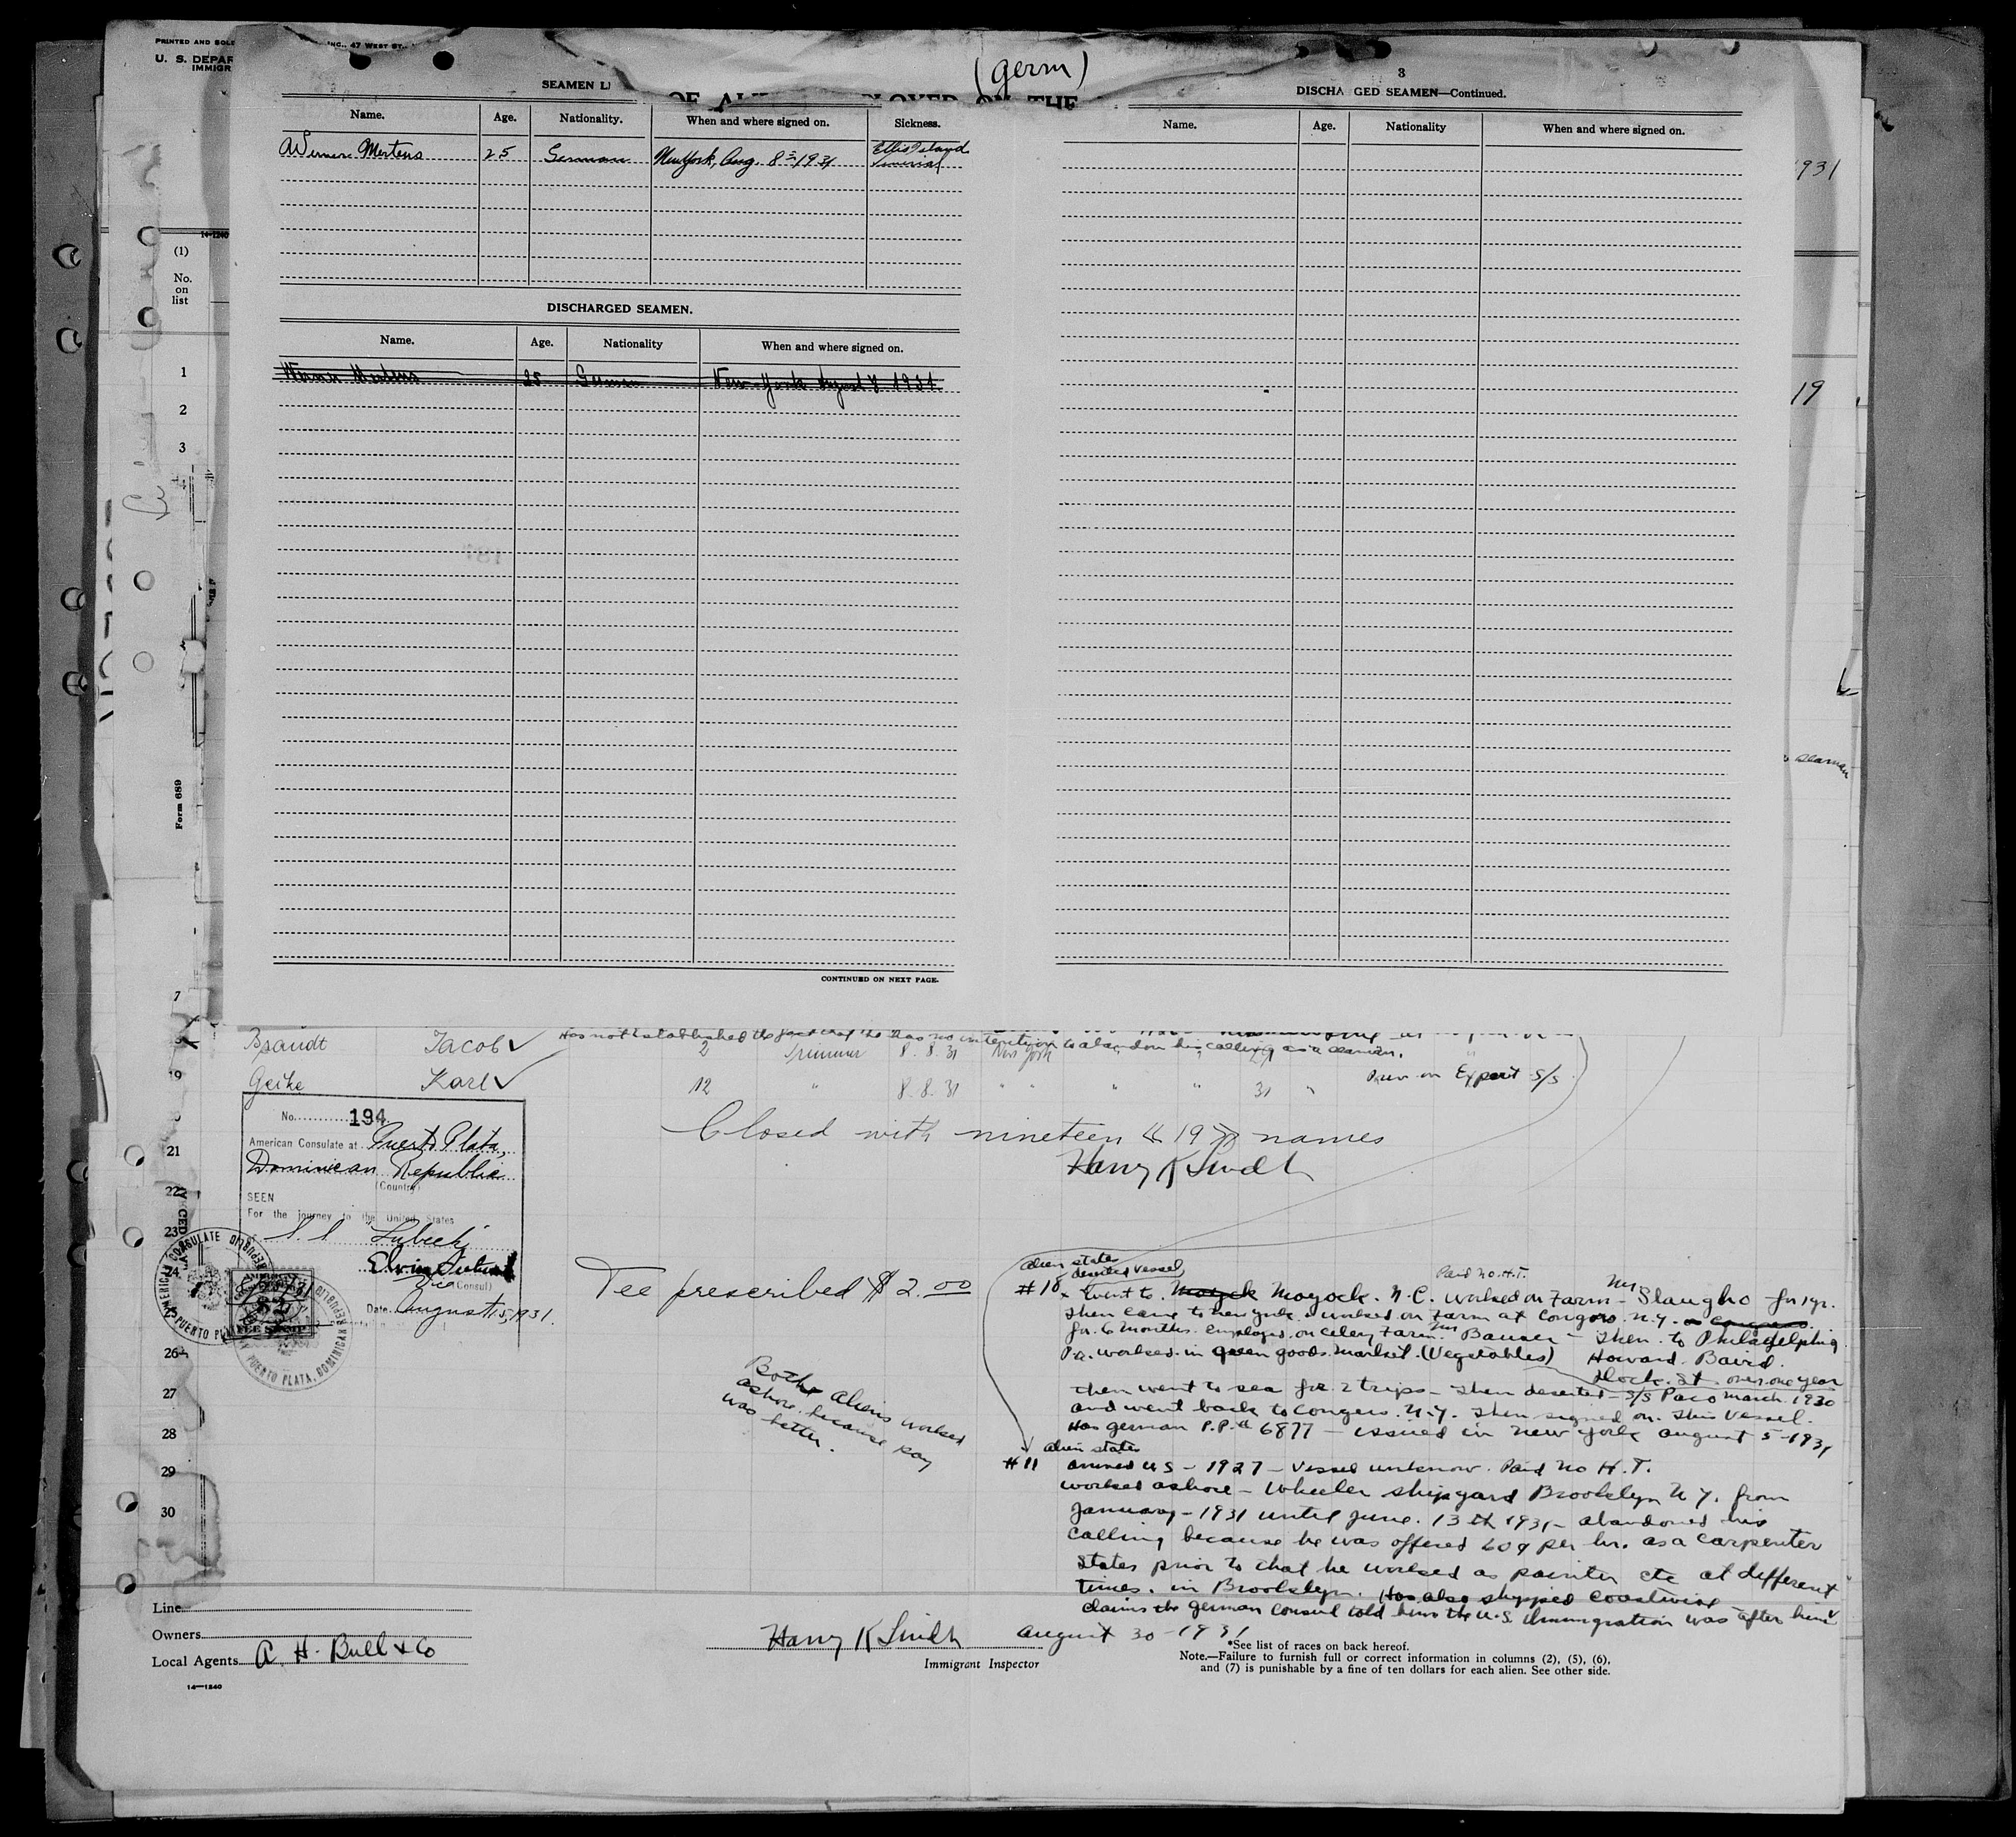 PRINTED AND SOLD
INC., 47 WEST ST.,
U. S. DEPAR
IMMIGR
(germ)
SEAMEN L
3
DISCHA GED SEAMEN—Continued.
Name. Age. Nationality. When and where signed on. Sickness.
Name. Age. Nationality When and where signed on.
Werner Mertens 25 German New York, Aug. 8 1931 Ellis Island
1931
14-1240
(1)
No.
on
list
DISCHARGED SEAMEN.
Name. Age. Nationality When and where signed on.
1 Werner Mertens 25 German New York August 8 1931
19
2
3
Seaman
Form 689
CONTINUED ON NEXT PAGE.
7
Has not established the fact that he has no intention to abandon his calling as a seaman.
Brandt Jacob ✓ 2 Trimmer 8.8.31 New York
19 Geike Karl ✓ 12 " 8.8.31 " " " " 31 " on Export S/S
No. 194
American Consulate at Puerto Plata,
Dominican Republic
(Country)
SEEN
For the journey to the United States
S. S. Lubeck
Vice (Consul)
Date August 15, 1931.
AMERICAN CONSULATE
PUERTO PLATA, DOMINICAN REPUBLIC
Closed with nineteen << 19 >> names
Harry K Lindh
21
22
23
24
Fee prescribed $2.00
alien states
deserted vessel
Paid no H.T.
#10 Went to Moyock Moyock. N.C. worked on Farm - Mr Slaugho for 1 yr.
Then came to new york & worked on Farm at Congers N.Y.
for 6 months. employed on celery Farm Mr Bauser - Then to Philadelphia
Pa. worked in green goods market. (Vegetables) Howard Baird.
Dock. St. over one year
then went to sea for 2 trips - Then deserted - S/S Paco march 1930
and went back to Congers. N.Y. Then signed on this Vessel.
Has german P.P. # 6877 - issued in new york august 5-1931
26
27
28
29
30
Both aliens worked
ashore because pay
was better.
alien states
#11 arrived US - 1927 - Vessel unknow. Paid no H.T.
worked ashore - Wheeler shipyard Brooklyn N.Y. from
January - 1931 until June. 13th 1931 - abandoned his
calling because he was offered 60¢ per hr. as a carpenter
states prior to that he worked as painter etc at different
times. in Brooklyn. Has also shipped coastwise
claims the german Consul told him the U.S. Immigration was after him
Line
Owners
Local Agents A. H. Bull & Co
14—1240
Harry K Lindh august 30-1931
Immigrant Inspector
*See list of races on back hereof.
Note.—Failure to furnish full or correct information in columns (2), (5), (6),
and (7) is punishable by a fine of ten dollars for each alien. See other side.